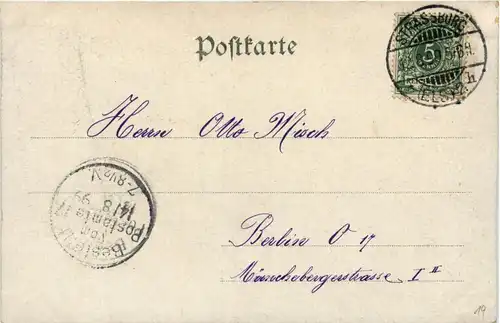 Postkarte
STRASSBURG
5
(ELS.)
Herrn Otto Misch
Bestellt
vom
Postamte 17
14/8 99
7-8½V.
Berlin O 17
Münchebergerstrasse I II
19